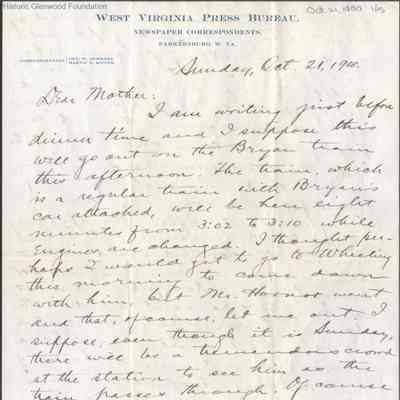 Historic Glenwood Foundation
Oct 21, 1900 1/3
WEST VIRGINIA PRESS BUREAU,
NEWSPAPER CORRESPONDENTS,
PARKERSBURG, W. VA.
CORRESPONDENTS
Sunday, Oct. 21, 1900.
Dear Mother:
I am writing just before
dinner time and I suppose this
will go out on the Bryan train
this afternoon. The train, which
is a regular train with Bryan's
car attached, will be here eight
minutes from 3:02 to 3:10 while
Engines are changed. I thought per-
haps I would get to go to Wheeling
this morning to come down
with him, but Mr. went
and that, of course, let me out. I
suppose, even though it is Sunday,
there will be a tremendous crowd
at the station to see him as the
train passes through. Of course